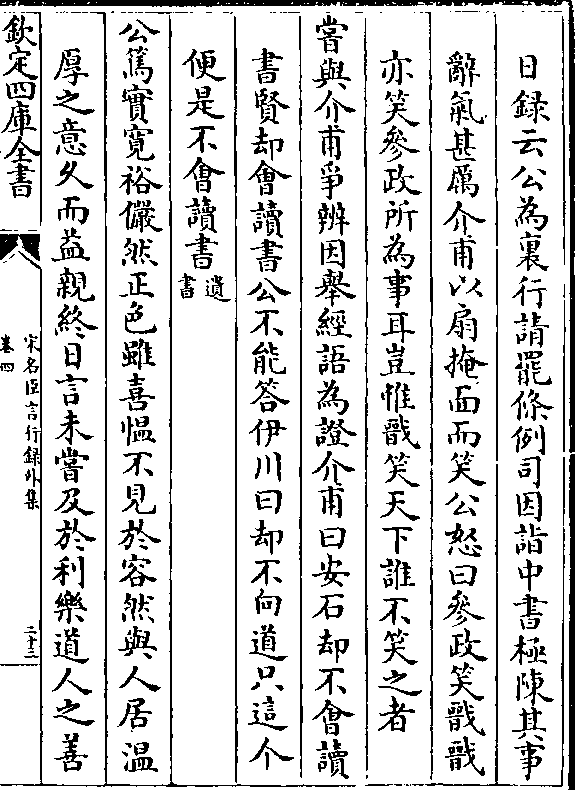 日録云公為裏行請罷條例司因詣中書極陳其事
辭氣甚厲介甫以扇掩面而笑公怒曰參政笑戩戩
亦笑參政所為事耳豈惟戩笑天下誰不笑之者
嘗與介甫爭辨因舉經語為證介甫曰安石却不會讀
書賢却會讀書公不能答伊川曰却不向道只這个
便是不會讀書遺書
公篤實寛裕儼然正色雖喜愠不見於容然與人居温
厚之意乆而益親終日言未嘗及於利樂道人之善
欽定四庫全書
宋名臣言行録外集
卷四
二十三